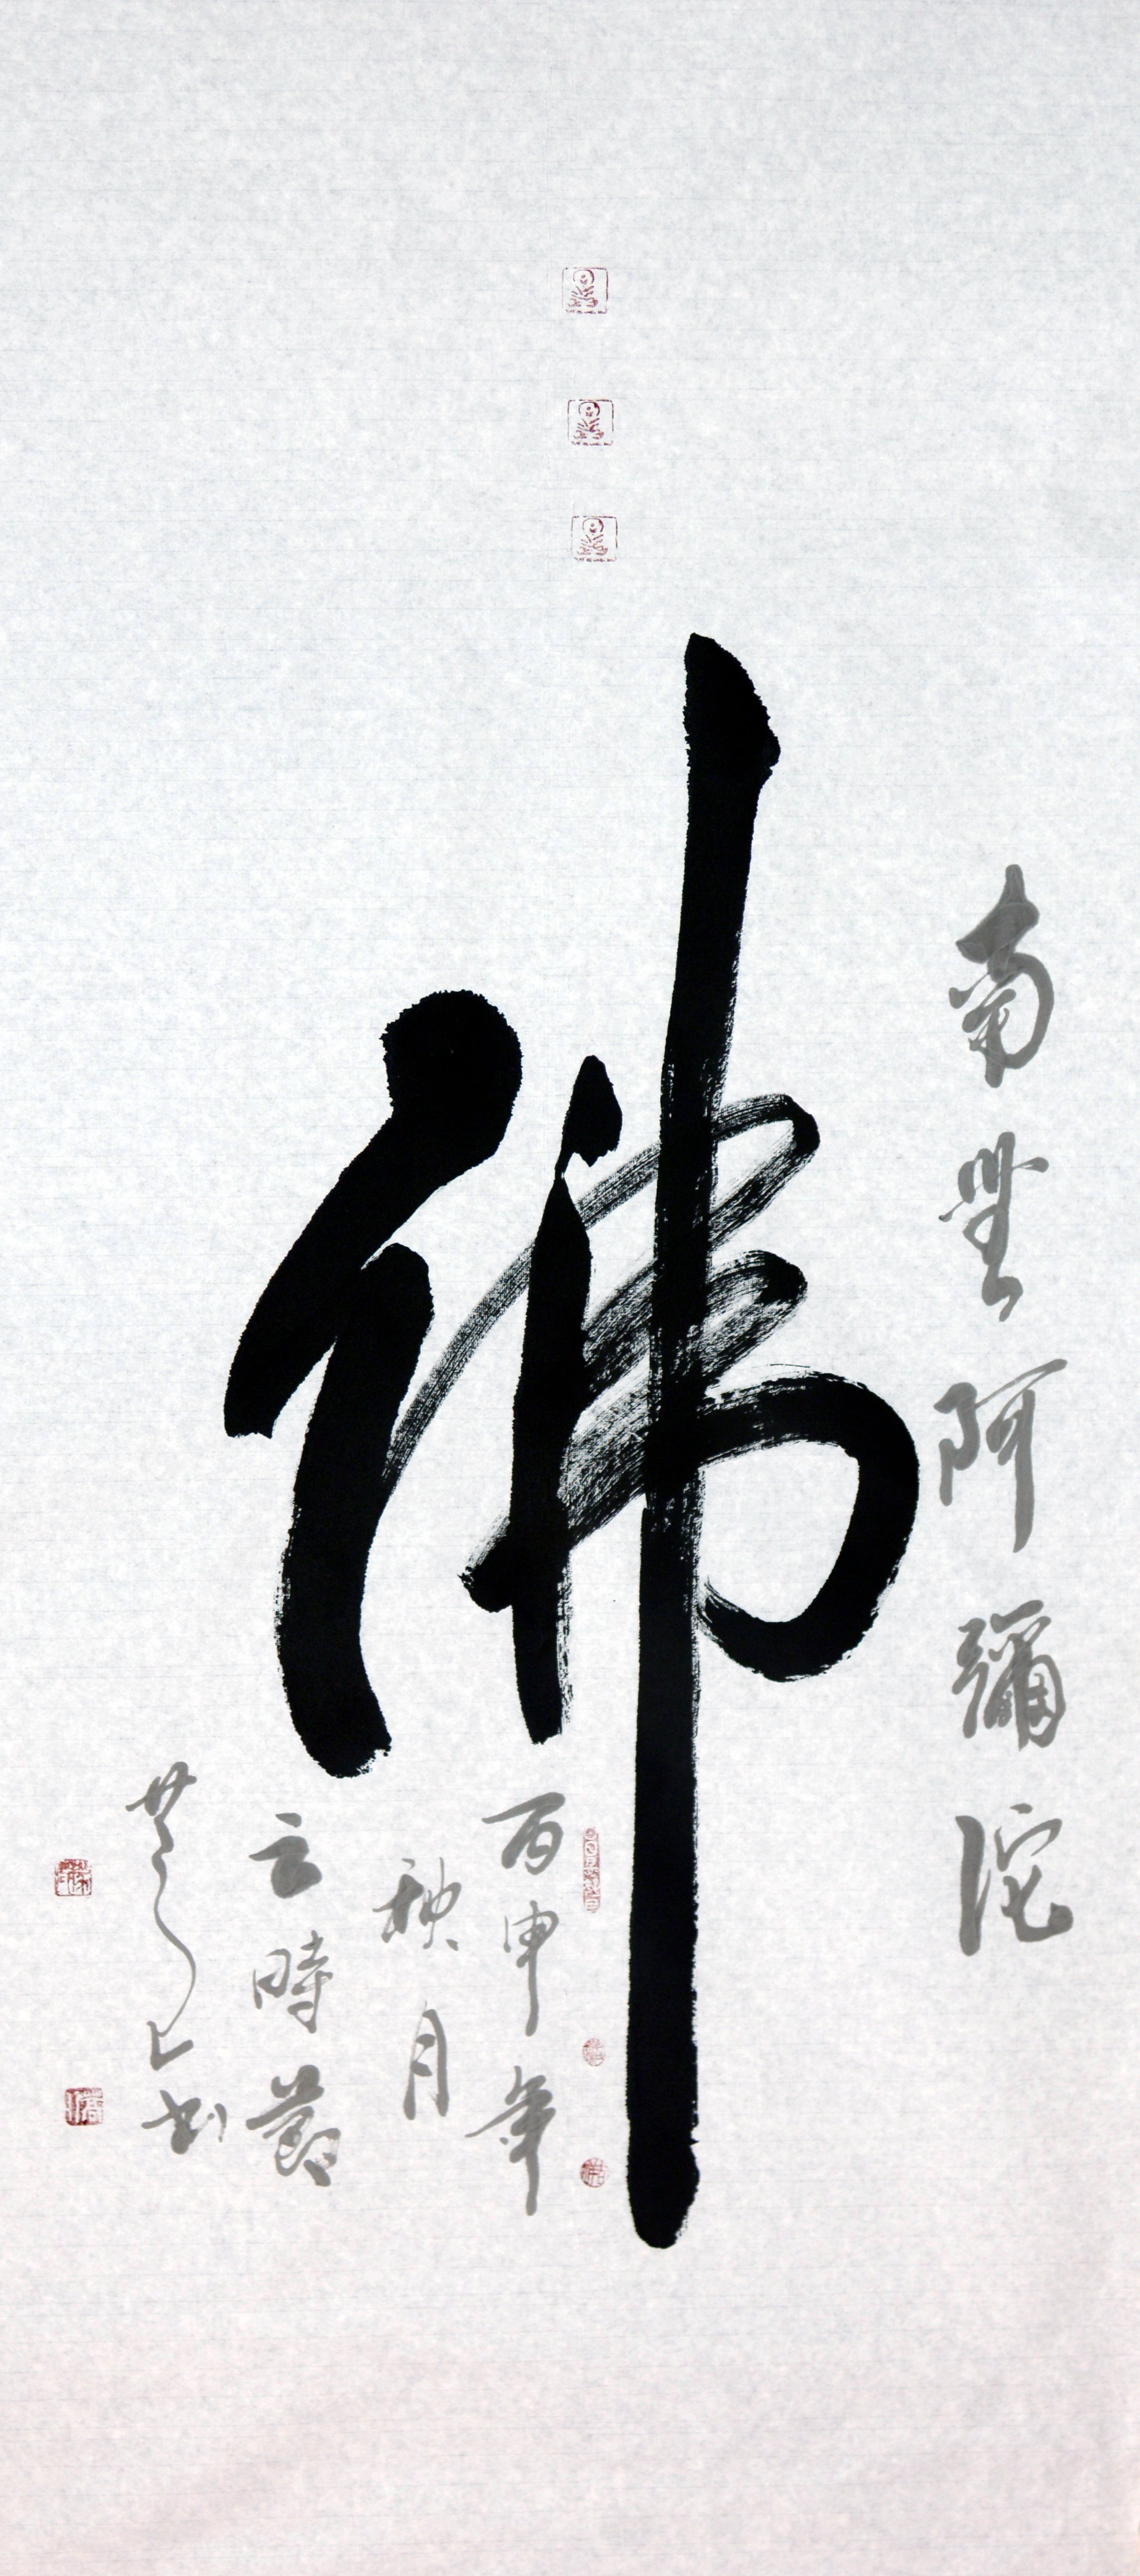 南無阿彌陀
佛
丙申年
秋月
云時節